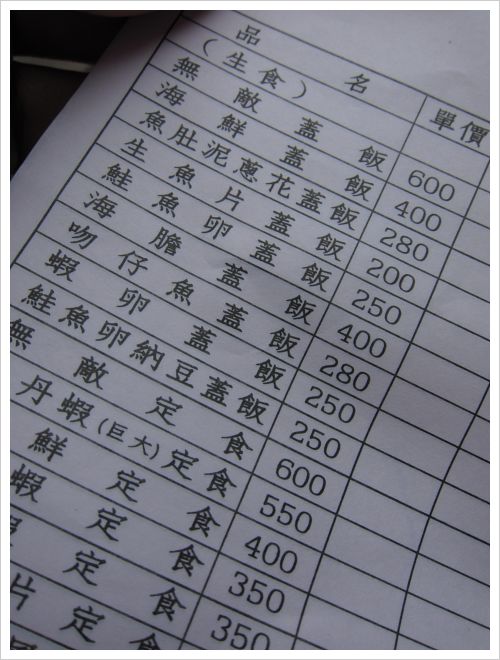 品名 單價
(生食)
無敵蓋飯 600
海鮮蓋飯 400
魚肚泥蔥花蓋飯 280
生魚片蓋飯 200
鮭魚卵蓋飯 250
海膽蓋飯 400
吻仔魚蓋飯 280
蝦卵蓋飯 250
鮭魚卵納豆蓋飯 250
無敵定食 600
丹蝦(巨大)定食 550
鮮定食 400
蝦定食 350
定食 350
片定食